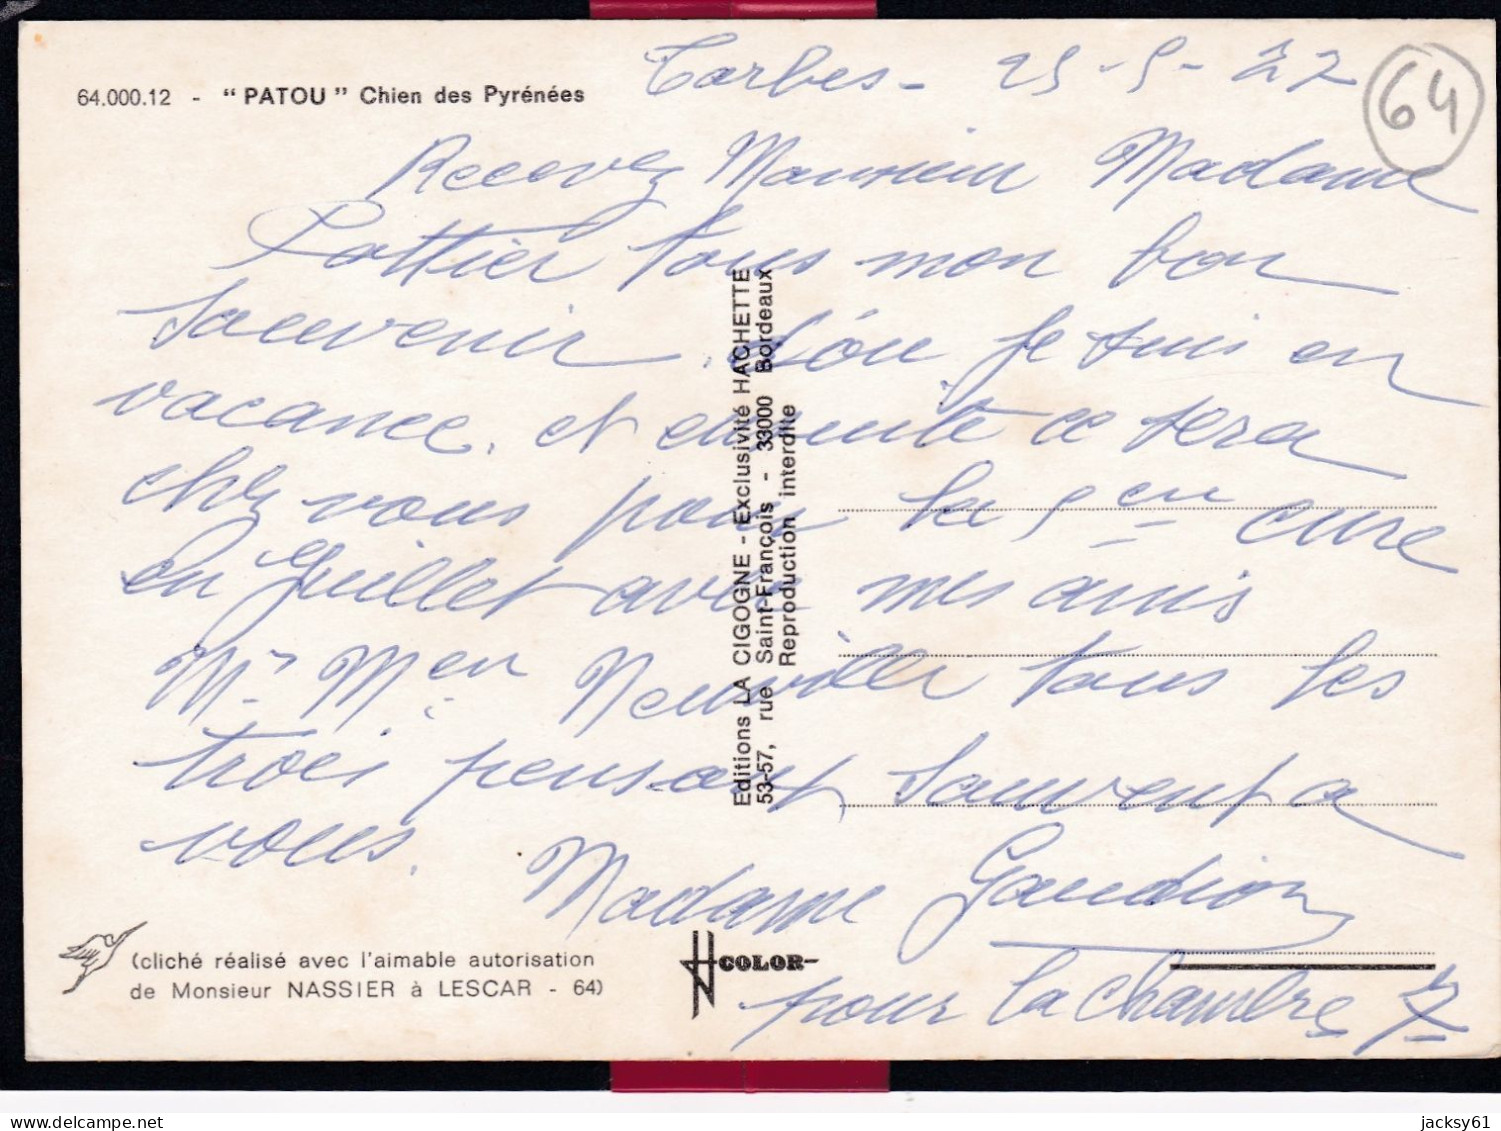 64.000.12 - "PATOU" Chien des Pyrénées
Tarbes - 25-5-77
64
Recevez Monsieur Madame
Pottier tous mon bon
souvenir. d'ou je suis en
vacance. et ensuite ce sera
chez vous pour la 5em cure
en Juillet avec mes amis
Mr Mem Neuville tous les
trois pensant souvent a
vous.
Madame Gaudion
pour la chambre 7
Editions LA CIGOGNE - Exclusivité HACHETTE
53-57, rue Saint-François - 33000 Bordeaux
Reproduction interdite
(cliché réalisé avec l'aimable autorisation
de Monsieur NASSIER à LESCAR - 64)
COLOR
jacksy61